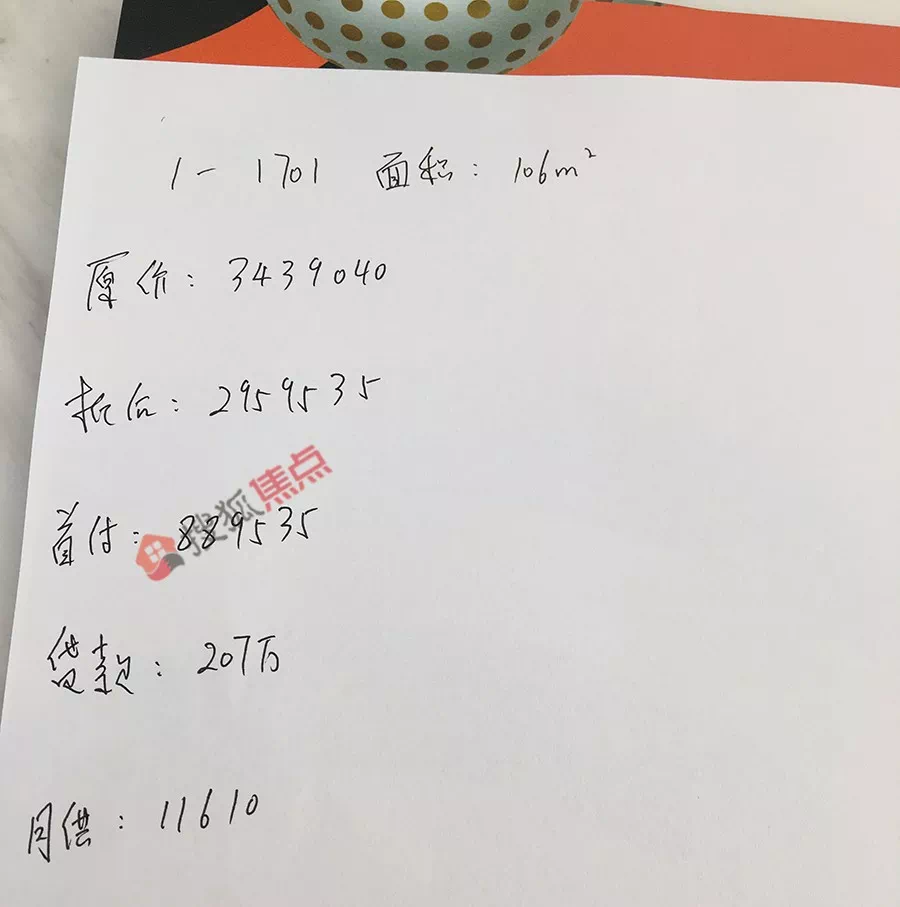 1-1701 面积: 106m²
原价: 3439040
折后: 2959535
搜狐焦点
首付: 889535
贷款: 207万
月供: 11610